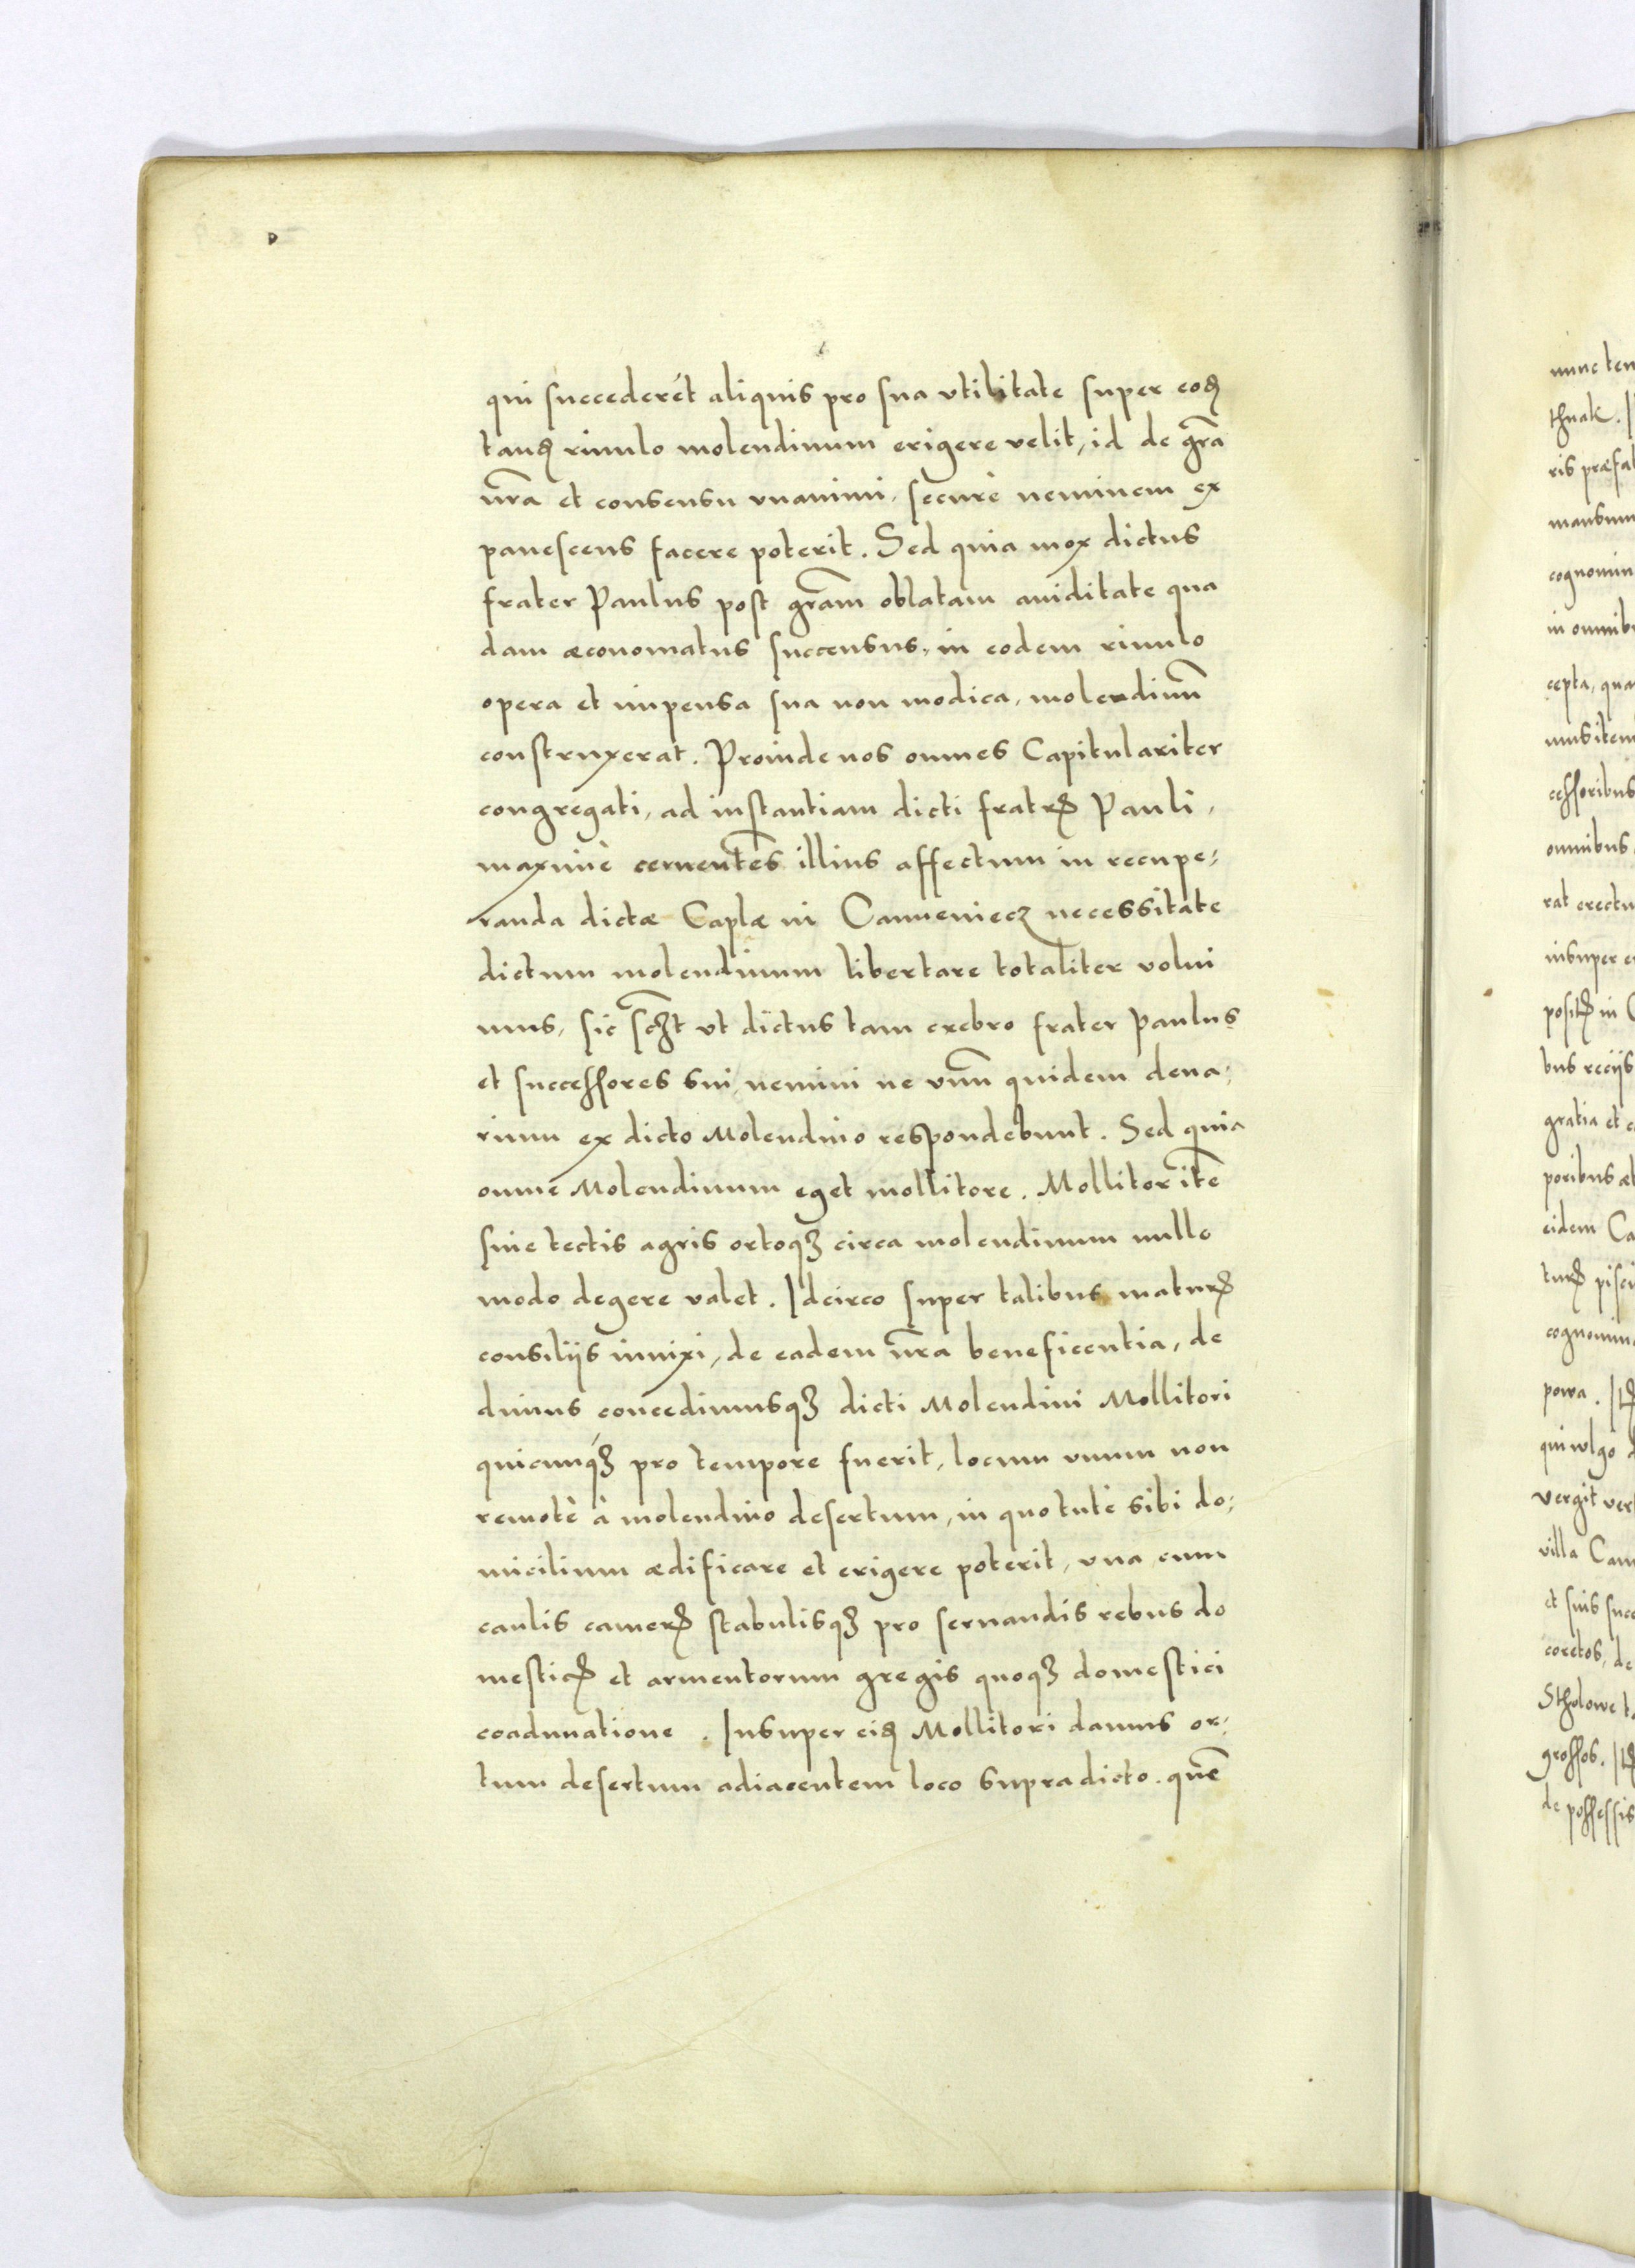 D
qui succederét aliquis pro sua vtilitate super eoꝺ
tanꝺ riuulo molendinum erigere velit, id de gr̃a
nr̃a et consensu vnanimi, securè neminem ex
panescens facere poterit. Sed quia mox dictus
frater Paulus post gr̃am oblatam auiditate qua
dam æconomatus succensus, in eodem riuulo
opera et impensa sua non modica, molendinũ
construxerat. Proinde nos omnes Capitulariter
congregati, ad instantiam dicti fratrꝭ Pauli,
maximè cernentes illius affectum in recupe:
randa dictæ Caplæ in Camieniecz necessitate
dictum molendinum libertare totaliter volui
mus, sic scꝫt vt dictus tam crebro frater Paulus
et successores sui, nemini ne vnũ quidem dena:
rium ex dicto Molendino respondebunt. Sed quia
omne Molendinum eget mollitore. Mollitor itẽ
sine tectis agris ortoqꝫ circa molendinum nullo
modo degere valet. Idcirco super talibus maturꝭ
consilijs innixi, de eadem nr̃a beneficentia, de
dimus concedimusqꝫ dicti Molendini Mollitori
quicunqꝫ pro tempore fuerit, locum vnum non
remotè à molendino desertum, in quo tutè sibi do:
micilium ædificare et erigere poterit, vna cum
caulis camerꝭ stabulisqꝫ pro seruandis rebus do
mesticꝭ et armentorum gregis quoqꝫ domestici
coadunatione. Insuper eiꝺ Mollitori damus or:
tum desertum adiacentem loco supradicto. quẽ
nunc ten
thnak.
ris præfat
mansum
cognomin
in omnib
cepta, qua
mus item
cessoribus
omnibus
rat erectu
insuper e
positꝭ in C
bus recijs
gratia et c
poribus æt
eidem Ca
turꝭ pisci
cognomin
powa.
qui wlgo d
vergit vers
villa Cam
et suis succ
coretos, de
Stholowe t
grossos.
de possessis